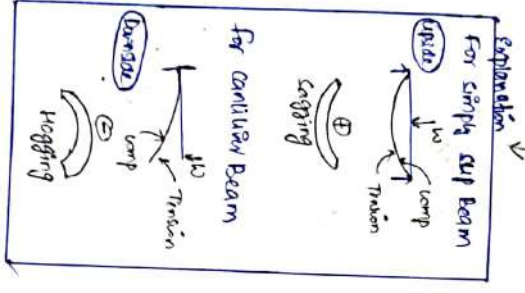 Explanation
For simply sup Beam
Upside
W
comp
Tension
+
Sagging
for cantiliver Beam
Downside
W
Tension
comp
-
Hogging